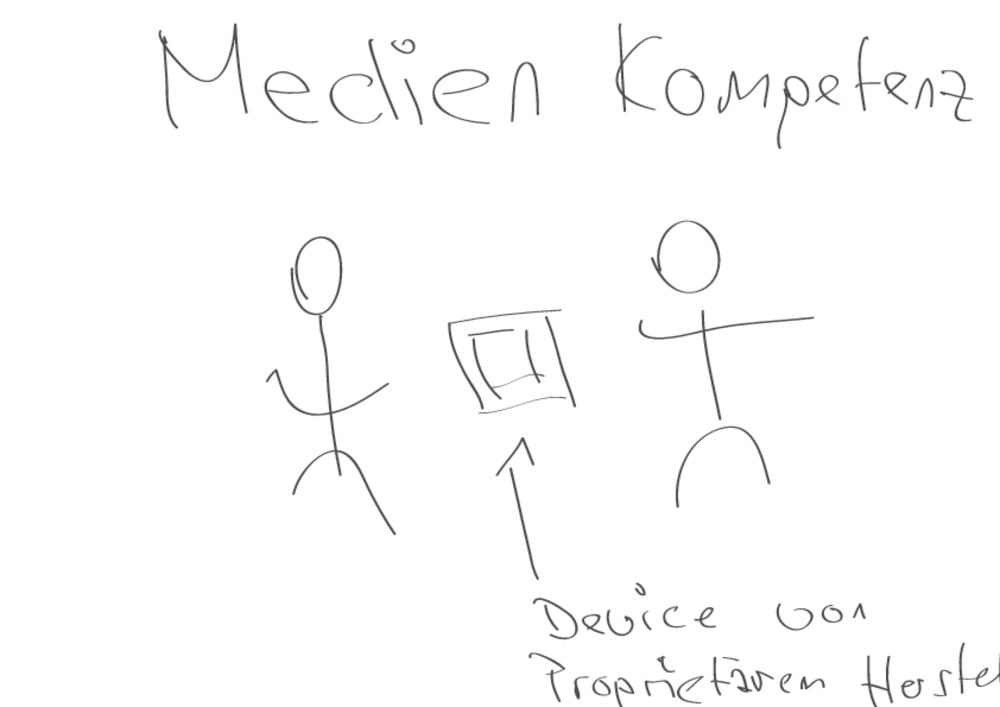 Medien Kompetenz
Device von
Proprietären Herstel